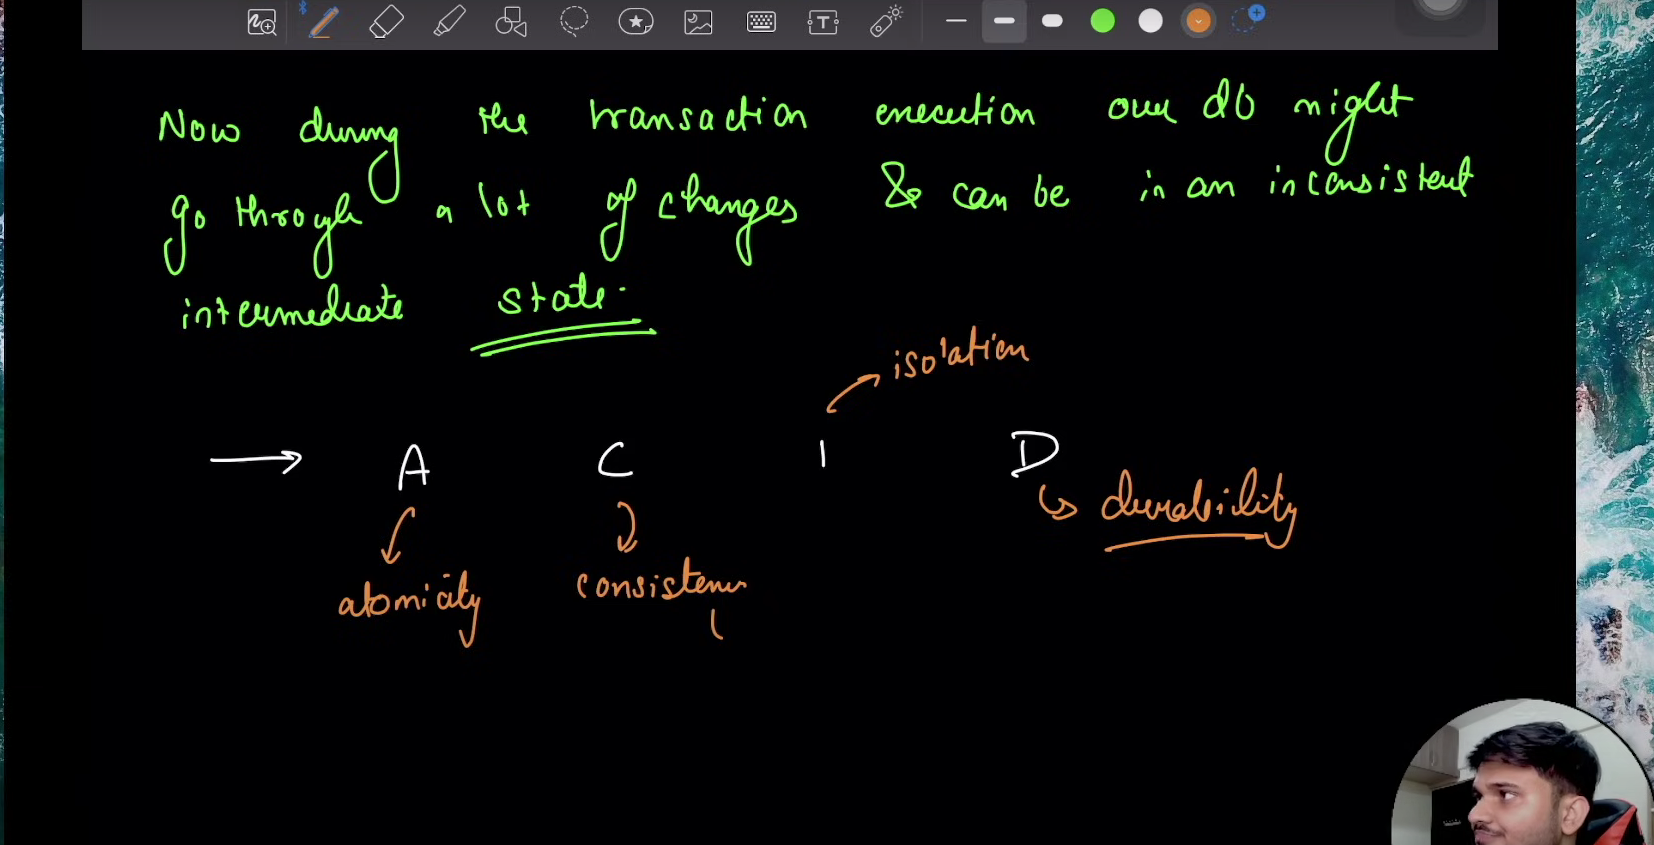 Now during the transaction execution our db might
go through a lot of changes & can be in an inconsistent
intermediate state.
isolation
A C I D
durability
atomicity consistency